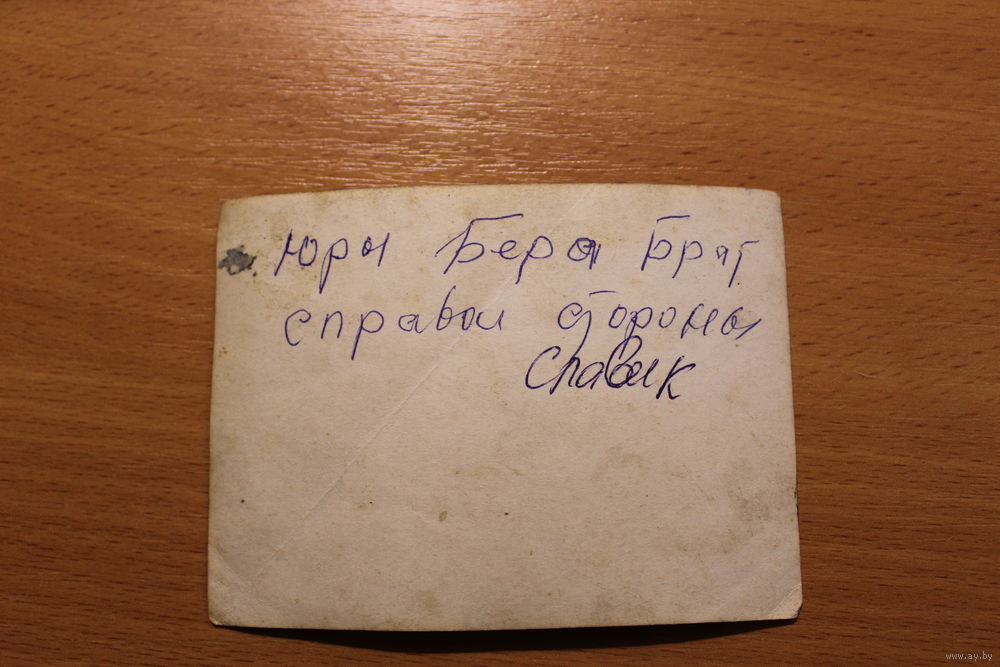 Юры Бера Брат
справой стороны
Славик
www.ay.by